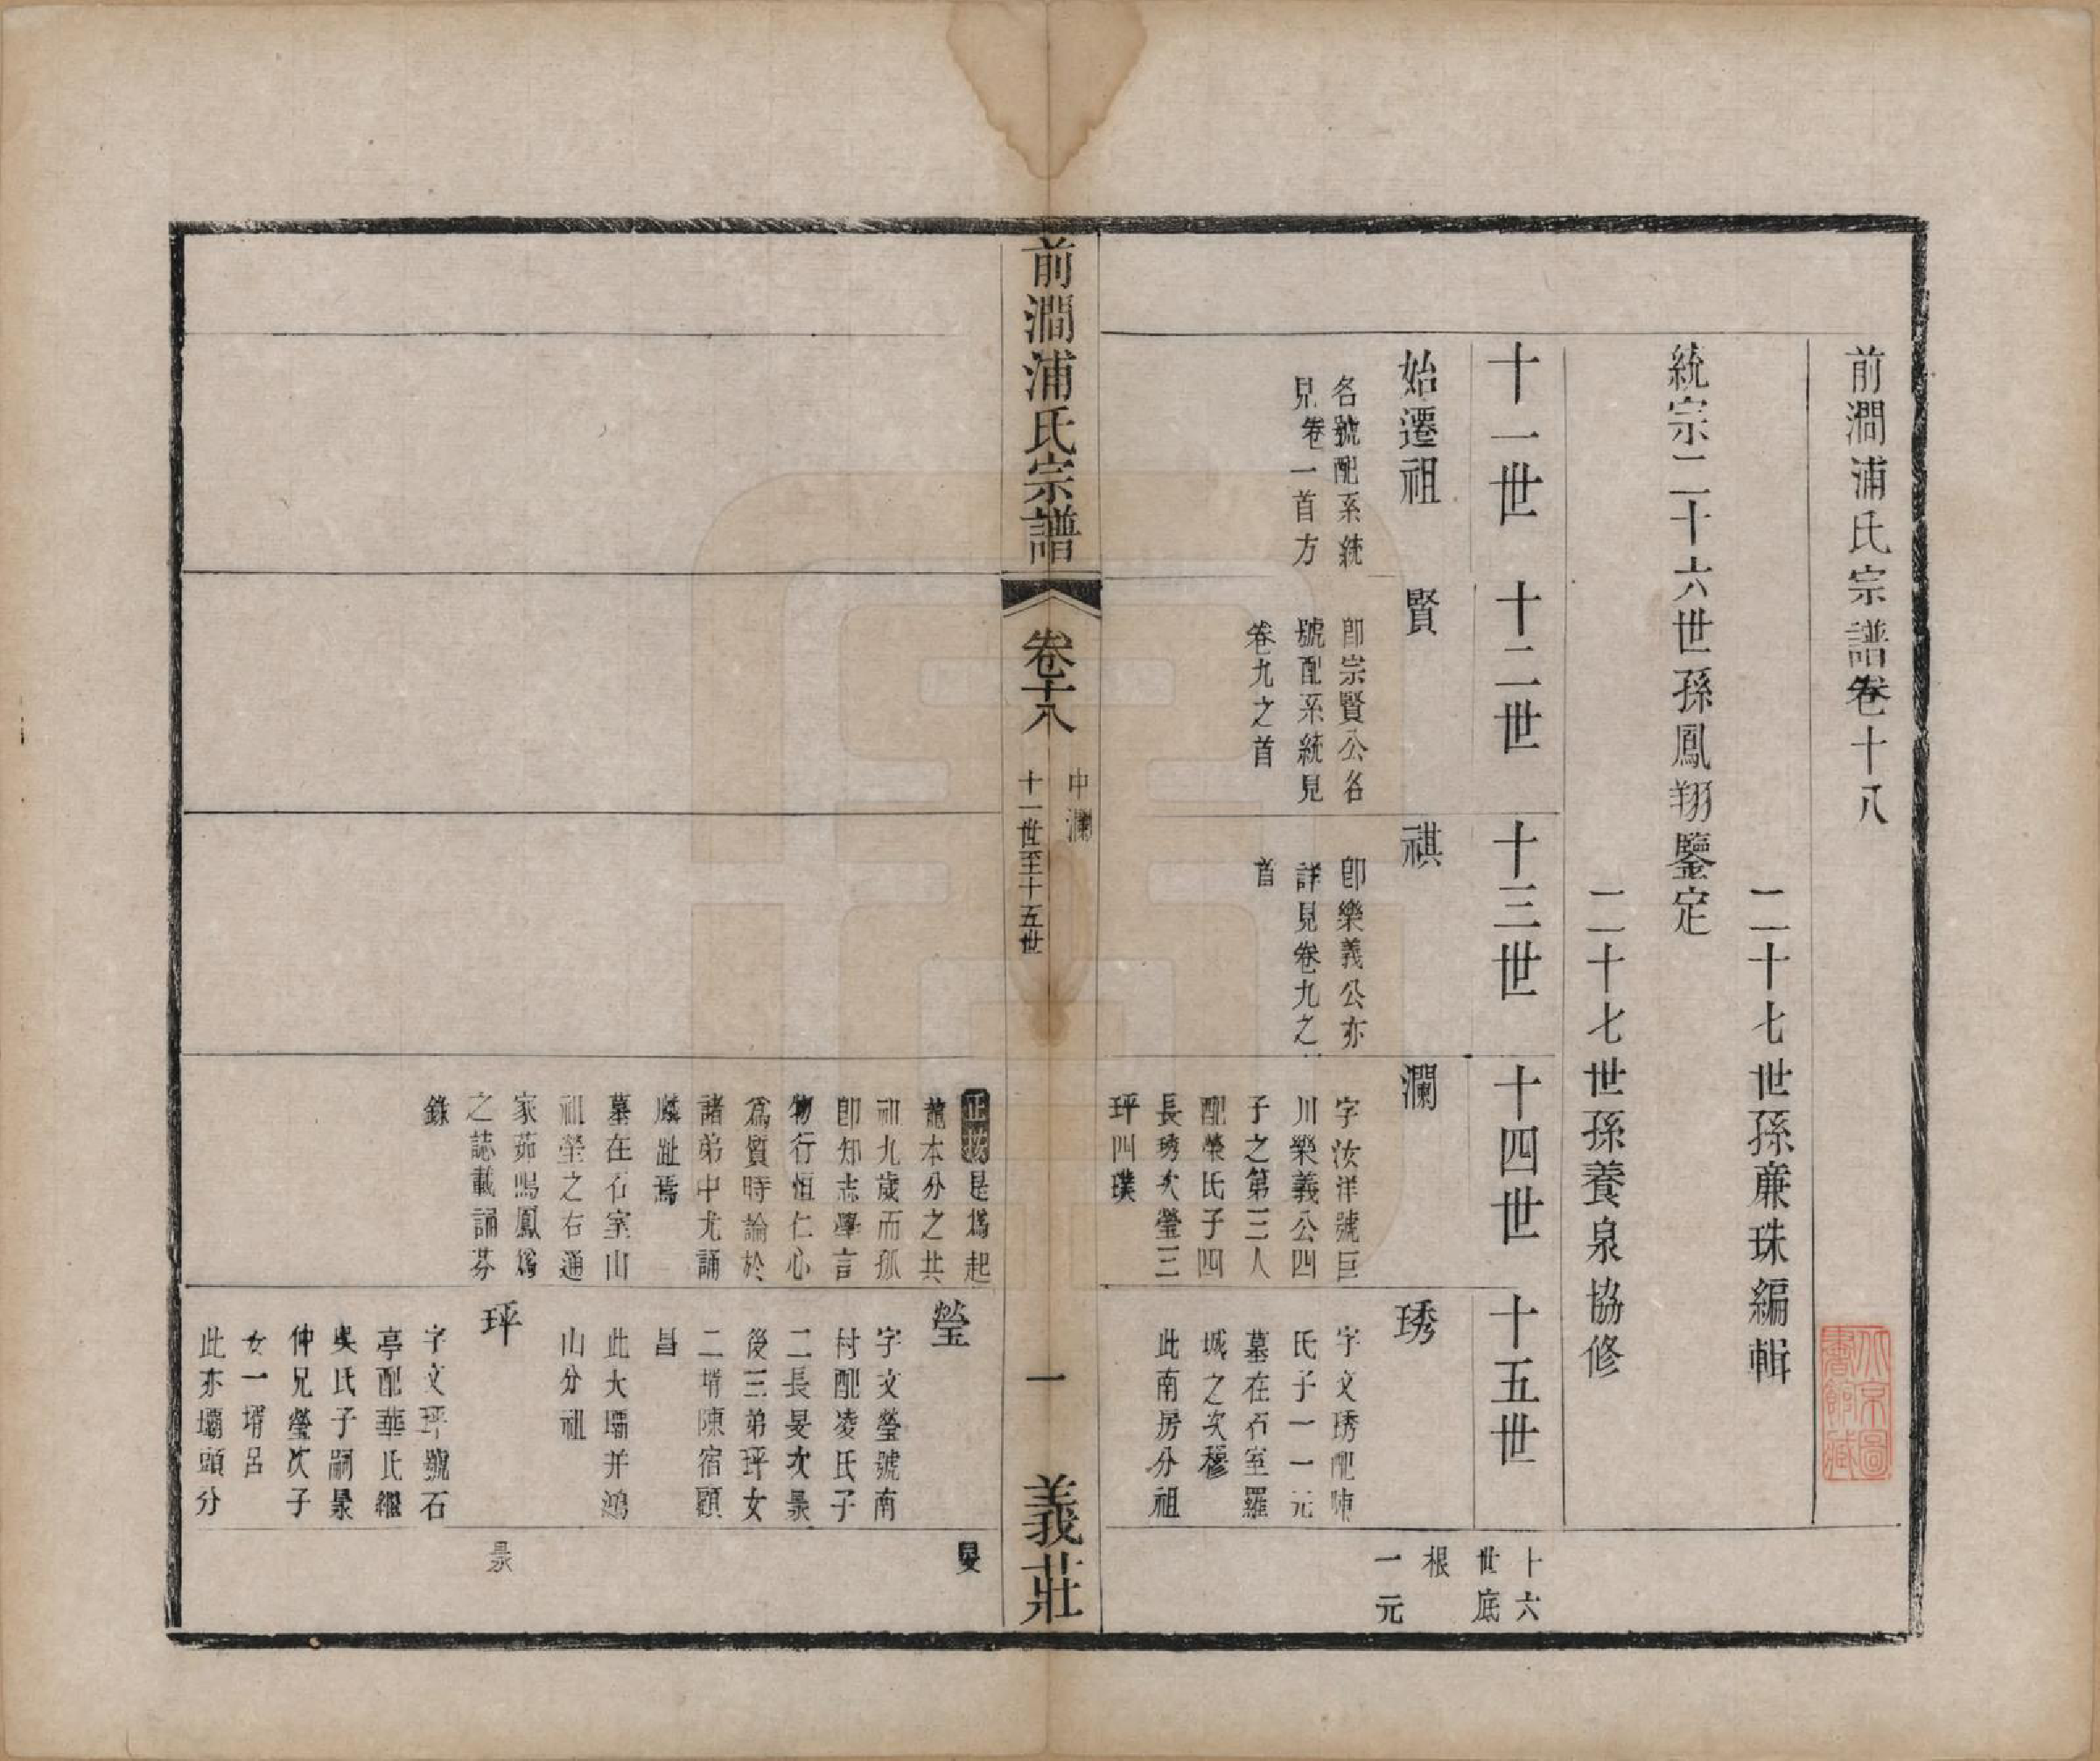 前澗浦氏宗譜卷十八
二十七世孫亷珠編輯
統宗二十六世孫鳳翔鑒定
二十七世孫養泉協修
十一世
始遷祖
名號配系統
見卷一首方
十二世
賢
卽宗賢公名
號配系統見
卷九之首
十三世
祺
卽樂義公亦
詳見卷九之
首
十四世
瀾
字汝洋號巨
川樂義公四
子之第三人
配榮氏子四
長琇次瑩三
玶四璞
十五世
琇
字文琇配陳
氏子一一元
墓在石室羅
城之次穆
此南房分祖
十六
世底
根
一元
前澗浦氏宗譜
卷十八
中瀾
十一世至十五世
一
義莊
是爲起
龍本分之共
祖九歲而孤
卽知志學言
物行恒仁心
爲質時論於
諸弟中尤誦
麟趾焉
墓在石室山
祖塋之右通
家茹鳴鳳爲
之誌載誦芬
錄
瑩
字文瑩號南
村配凌氏子
二長旻次㫤
後三弟玶女
二壻陳宿顧
昌
此大壩并鴻
山分祖
玶
字文玶號石
亭配華氏繼
吳氏子嗣㫤
仲兄瑩次子
女一壻呂
此亦壩頭分
旻
㫤